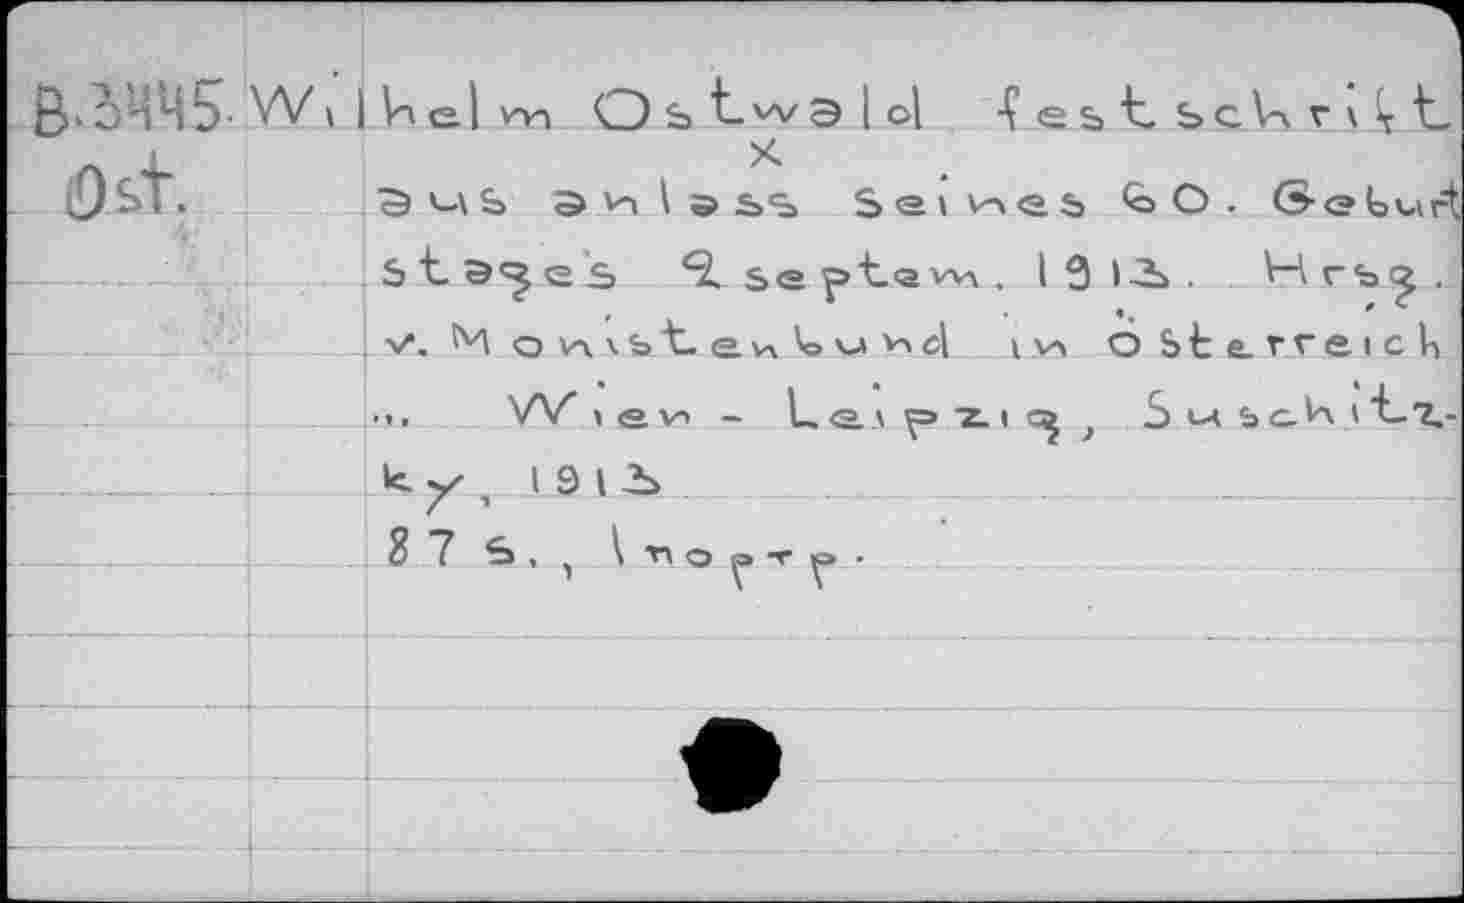 B.3445. Wilhelm Ostwald festschrift
Ost. x
aus anlass Seines 60. Geburt
stages 2. septem. 1913. Hrsg.
v. Monistenbund in österreich
... Wien - Leipzig, Suschitz-
ky, 1913
87 s., 1 портр.